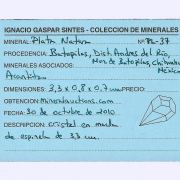 IGNACIO GASPAR SINTES - COLECCION DE MINERALES
MINERAL: Plata Nativa Nº
PROCEDENCIA: Batopilas, Dist. Andres del Río,
Mun. de Batopilas, Chihuahua
MINERALES ASOCIADOS: México
Acantita
DIMENSIONES: 3,3 x 0,8 x 0,7 cm PRECIO:
OBTENCION: Mineralauctions.com
FECHA: 30 de octubre de 2010
DESCRIPCION: cristal en macla
de espinela de 3,3 cm.